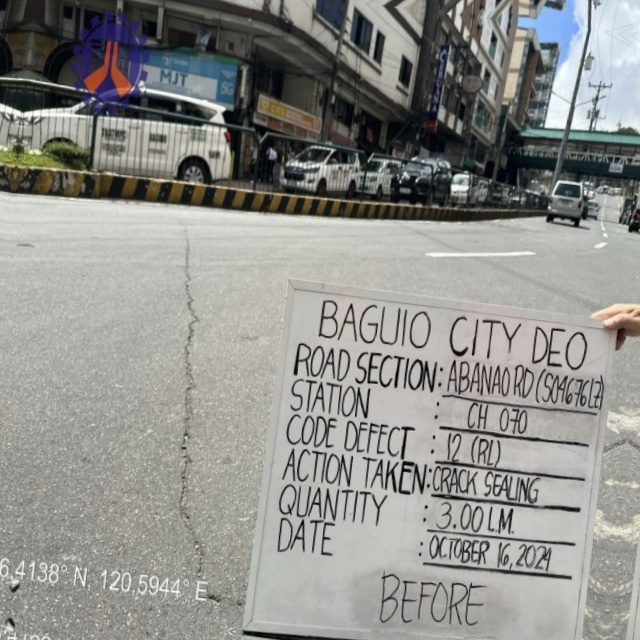 MJT
BAGUIO CITY DEO
ROAD SECTION: ABANAO RD (S04676LZ)
STATION : CH 070
CODE DEFECT : 12 (RL)
ACTION TAKEN: CRACK SEALING
QUANTITY : 3.00 L.M.
DATE : OCTOBER 16, 2024
BEFORE
6.4138° N, 120.5944° E